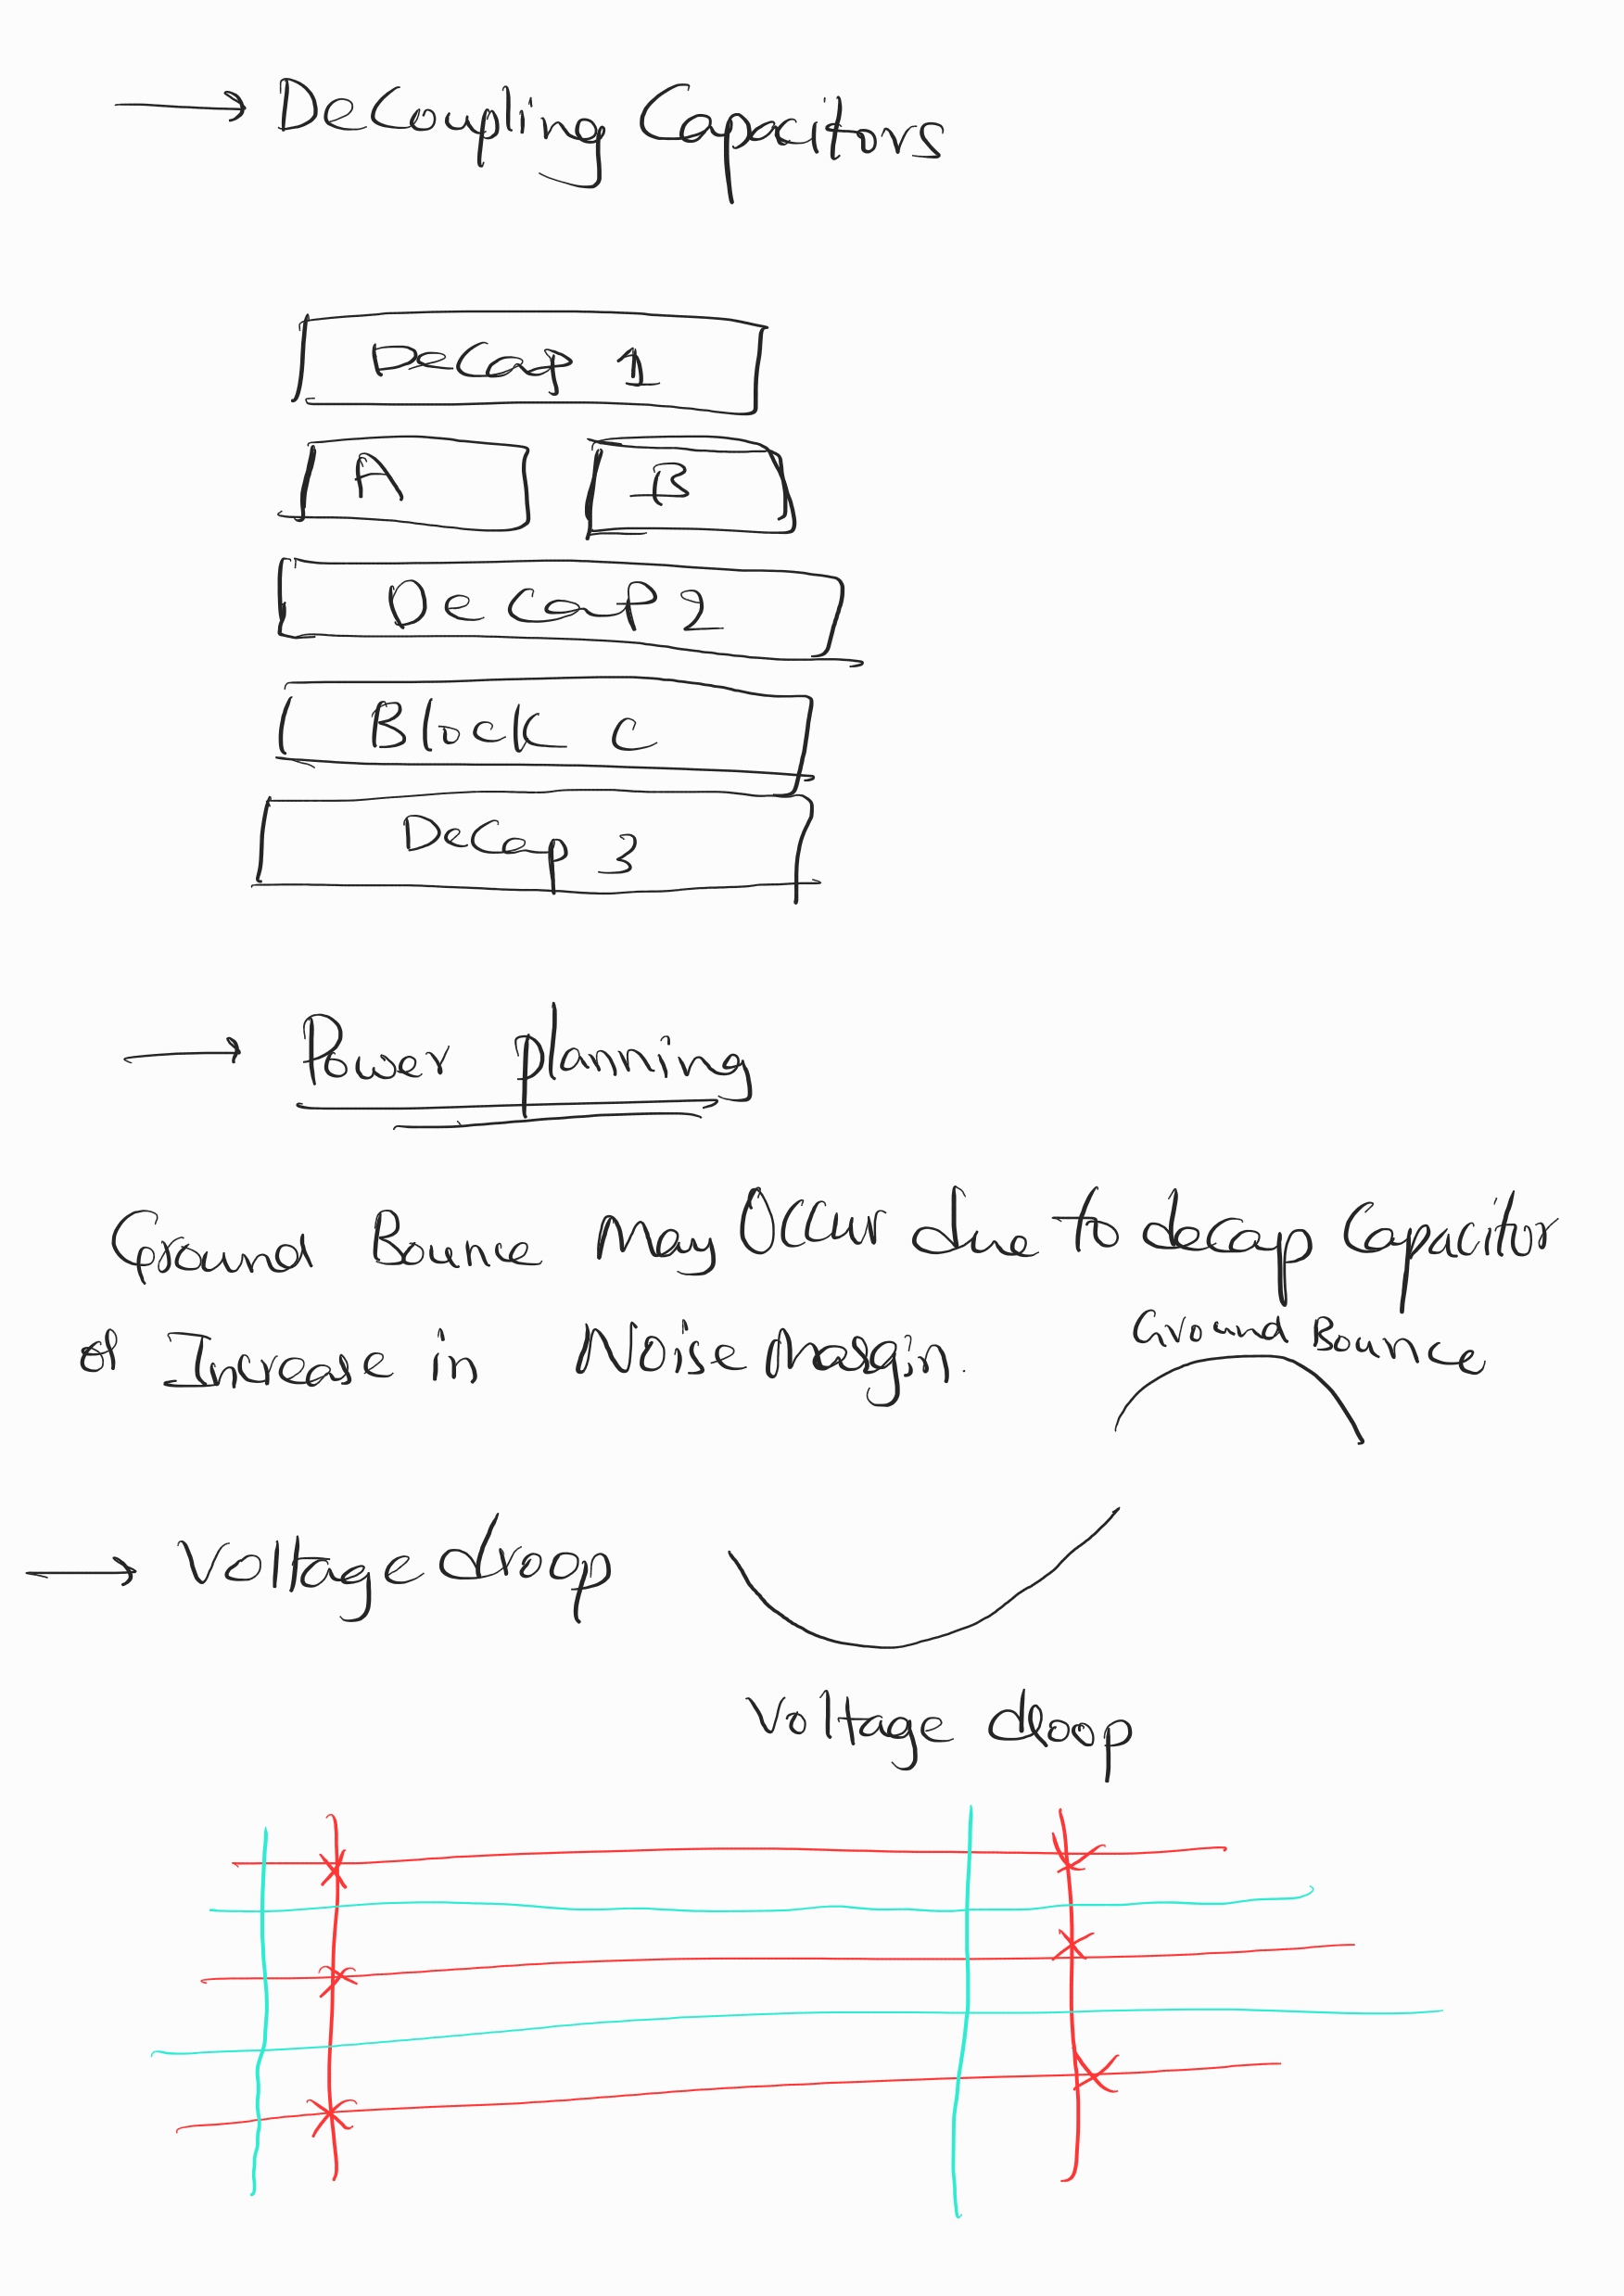 → DeCoupling Capacitors
DeCap 1
A
B
DeCap 2
Block C
DeCap 3
→ Power planning
Ground Bounce May Occur due to decap Capacitor
of Increase in Noise margin.
Ground Bounce
→ Voltage droop
Voltage droop